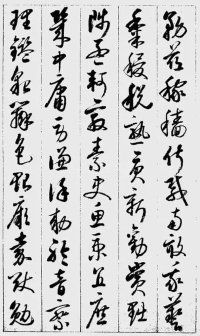 務茲稼穡俶載南畝我藝
黍稷稅熟貢新勸賞黜
陟孟軻敦素史魚秉直庶
幾中庸勞謙謹敕聆音察
理鑑貌辨色貽厥嘉猷勉